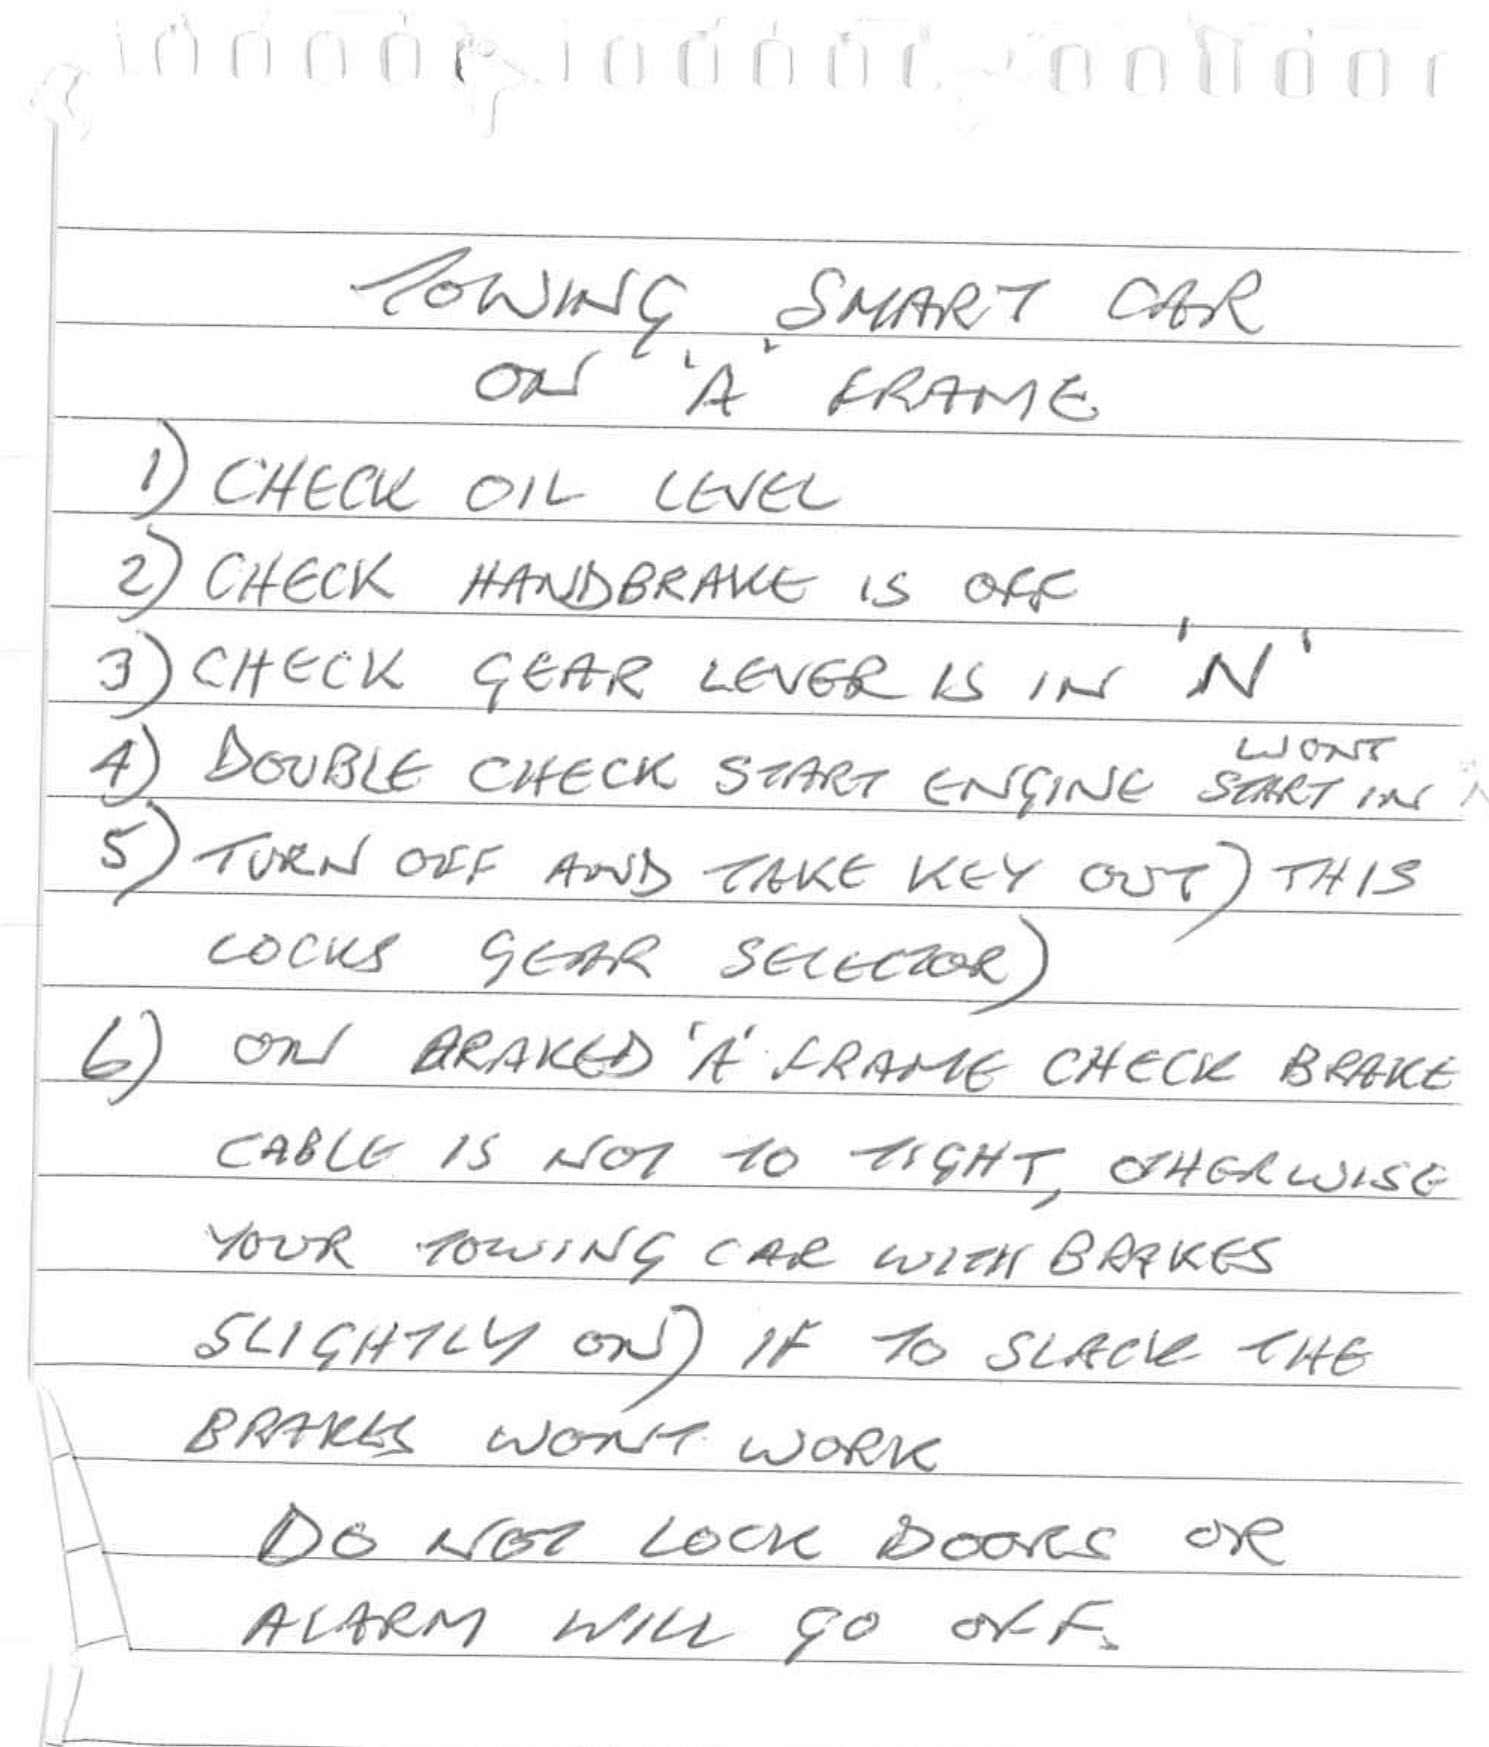 TOWING SMART CAR
ON 'A' FRAME
1) CHECK OIL LEVEL
2) CHECK HANDBRAKE IS OFF
3) CHECK GEAR LEVER IS IN 'N'
4) DOUBLE CHECK START ENGINE WONT START IN N
5) TURN OFF AND TAKE KEY OUT) THIS
LOCKS GEAR SELECTOR)
6) ON BRAKED 'A' FRAME CHECK BRAKE
CABLE IS NOT TO TIGHT, OTHERWISE
YOUR TOWING CAR WITH BRAKES
SLIGHTLY ON) IF TO SLACK THE
BRAKES WONT WORK
DO NOT LOCK DOORS OR
ALARM WILL GO OFF.